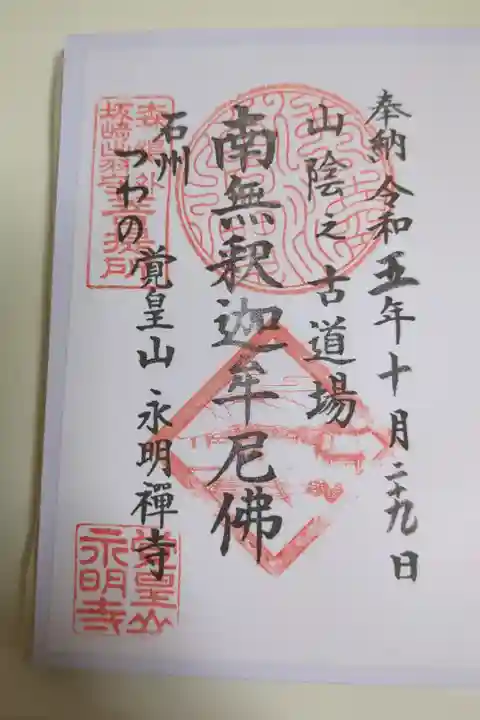 奉納 令和五年十月二十九日
山陰之古道場
南無釈迦牟尼佛
石州
つわの 覚皇山 永明禅寺
森鷗外
坂崎出羽守
覚皇山
永明寺